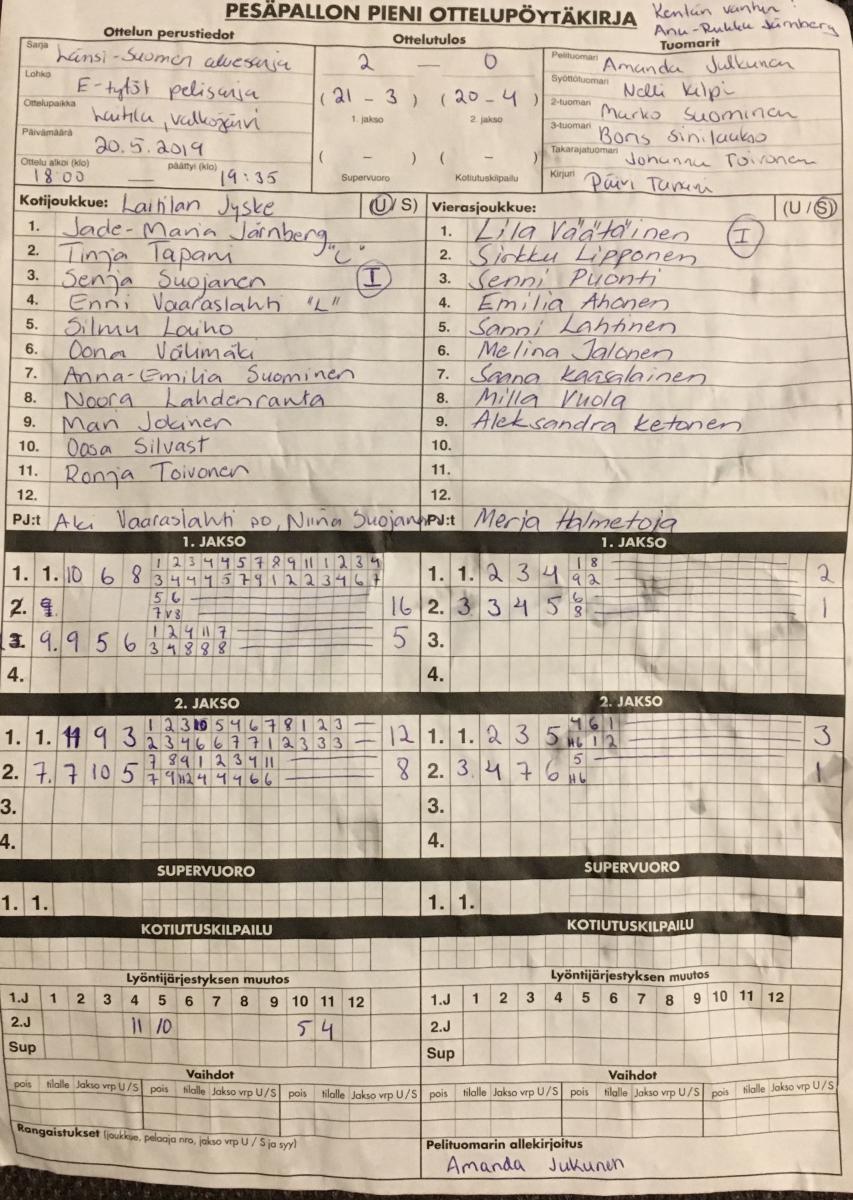 PESÄPALLON PIENI OTTELUPÖYTÄKIRJA
Kentän vanhin:
Anu-Riikka Järnberg
Ottelun perustiedot
Sarja Länsi-Suomen aluesarja
Lohko E-tytöt pelisarja
Ottelupaikka Laitila, Valkojärvi
Päivämäärä 20.5.2019
Ottelu alkoi (klo) päättyi (klo)
18:00 — 19:35
Ottelutulos
2 — 0
(21 - 3) (20 - 4)
1. jakso 2. jakso
( - ) ( - )
Supervuoro Kotiutuskilpailu
Tuomarit
Pelituomari Amanda Julkunen
Syöttötuomari Nelli Kilpi
2-tuomari Marko Suominen
3-tuomari Boris Sinilaakso
Takarajatuomari Johanna Toivonen
Kirjuri Päivi
Kotijoukkue: Laitilan Jyske (U/S)
1. Jade-Maria Järnberg
2. Tinja Tapani "L"
3. Senja Suojanen I
4. Enni Vaaraslahti "L"
5. Silmu Laiho
6. Oona Välimäki
7. Anna-Emilia Suominen
8. Noora Lahdenranta
9. Mari Jokinen
10. Oosa Silvast
11. Ronja Toivonen
12.
PJ:t Aki Vaaraslahti po, Niina Suojanen
Vierasjoukkue: (U/S)
1. Lila Väätäinen I
2. Sirkku Lipponen
3. Senni Puonti
4. Emilia Ahonen
5. Sanni Lahtinen
6. Melina Jalonen
7. Saana Kaasalainen
8. Milla Vuola
9. Aleksandra Ketonen
10.
11.
12.
PJ:t Merja Halmetoja
1. JAKSO
1. 1. 10 6 8 1 2 3 4 4 5 7 8 9 11 1 2 3 4
3 4 4 4 5 7 9 1 2 2 3 4 6 7
2. 5 6 16
7 8
3. 9. 9 5 6 1 2 4 11 7 5
3 4 8 8 8
4.
1. JAKSO
1. 1. 2 3 4 1 8 2
9 2
2. 3 3 4 5 6 1
8
3.
4.
2. JAKSO
1. 1. 11 9 3 1 2 3 10 5 4 6 7 8 1 2 3 12
2 3 4 6 6 7 7 1 2 3 3 3
2. 7. 7 10 5 7 8 9 1 2 3 4 11 8
7 9 4 4 4 6 6
3.
4.
2. JAKSO
1. 1. 2 3 5 4 6 1 3
H6 1 2
2. 3. 4 7 6 5 1
H6
3.
4.
SUPERVUORO
1. 1.
SUPERVUORO
1. 1.
KOTIUTUSKILPAILU
KOTIUTUSKILPAILU
Lyöntijärjestyksen muutos
1.J 1 2 3 4 5 6 7 8 9 10 11 12
2.J 11 10 5 4
Sup
Lyöntijärjestyksen muutos
1.J 1 2 3 4 5 6 7 8 9 10 11 12
2.J
Sup
Vaihdot
pois tilalle Jakso vrp U/S pois tilalle Jakso vrp U/S pois tilalle Jakso vrp U/S
Vaihdot
pois tilalle Jakso vrp U/S pois tilalle Jakso vrp U/S pois tilalle Jakso vrp U/S
Rangaistukset (joukkue, pelaaja nro, jakso vrp U / S ja syy)
Pelituomarin allekirjoitus
Amanda Jukunen